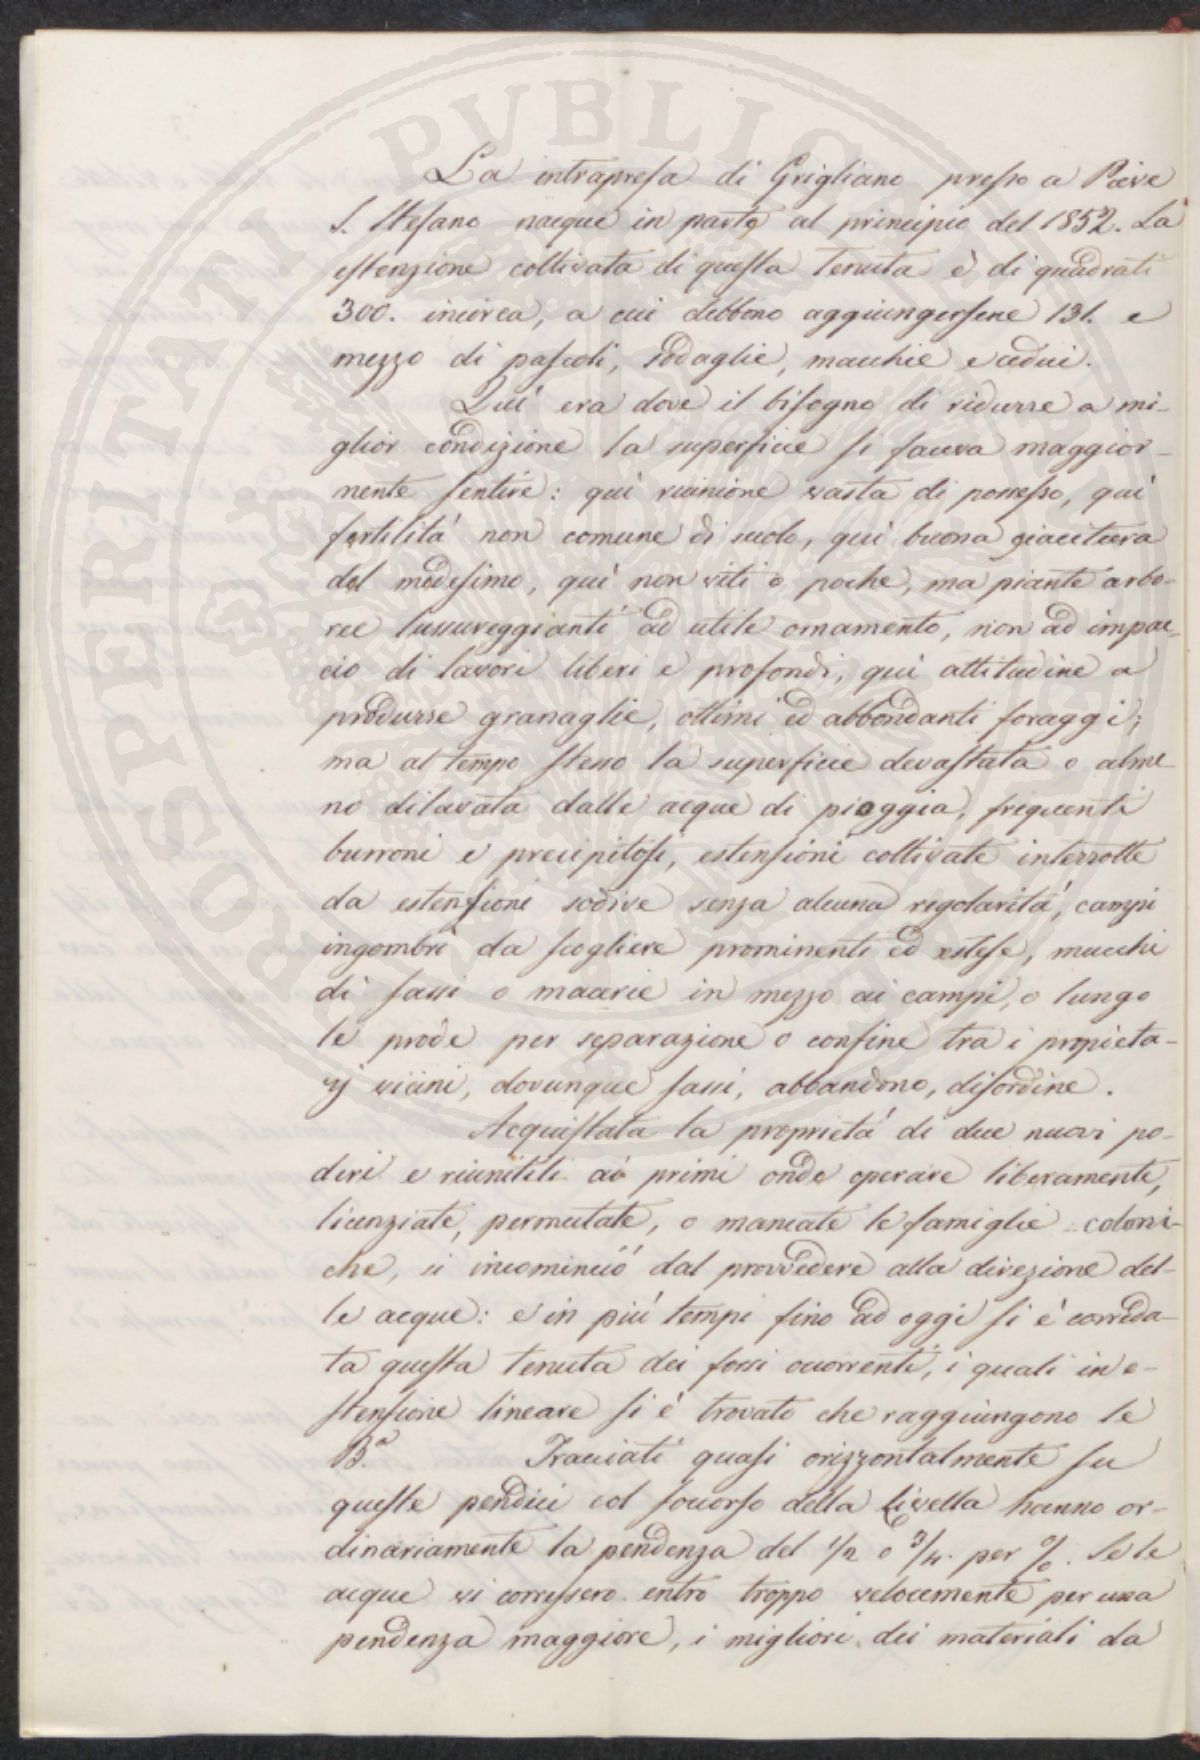 La intrapresa di Grigliano presso a Pieve
S. Stefano nacque in parte al principio del 1852. La
estenzione coltivata di questa Tenuta è di quadrati
300. incirca, a cui debbono aggiungersene 131. e
mezzo di pascoli, sodaglie, macchie e cedui.
Qui era dove il bisogno di ridurre a mi-
glior condizione la superficie si faceva maggior-
mente sentire: qui riunione vasta di possesso, qui
fertilità non comune di suolo, qui buona giacitura
del medesimo, qui non viti o poche, ma piante arbo-
ree lussureggianti ad utile ornamento, non ad impac-
cio di lavori liberi e profondi, qui attitudine a
produrre granaglie, ottimi ed abbondanti foraggi;
ma al tempo stesso la superficie devastata o alme
no dilavata dalle acque di pioggia, frequenti
burroni e precipitosi, estensioni coltivate interrotte
da estensioni sodive senza alcuna regolarità, campi
ingombri da scogliere prominenti ed estese, mucchi
di sassi o macerie in mezzo ai campi, o lungo
le prode per separazione o confine tra i proprieta-
rj vicini, dovunque sassi, abbandono, disordine.
Acquistata la proprietà di due nuovi po-
deri e riunitili ai primi onde operare liberamente,
licenziate, permutate, o mancate le famiglie coloni-
che, si incominciò dal provvedere alla direzione del-
le acque: e in più tempi fino ad oggi si è correda-
ta questa tenuta dei fossi occorrenti, i quali in e-
stensione lineare si è trovato che raggiungono le
B.ª Tracciati quasi orizzontalmente su
queste pendici col soccorso della livella hanno or-
dinariamente la pendenza del 1/2 o 3/4. per %. Se le
acque vi corressero entro troppo velocemente per una
pendenza maggiore, i migliori dei materiali da
PROSPERITATI PUBLICAE